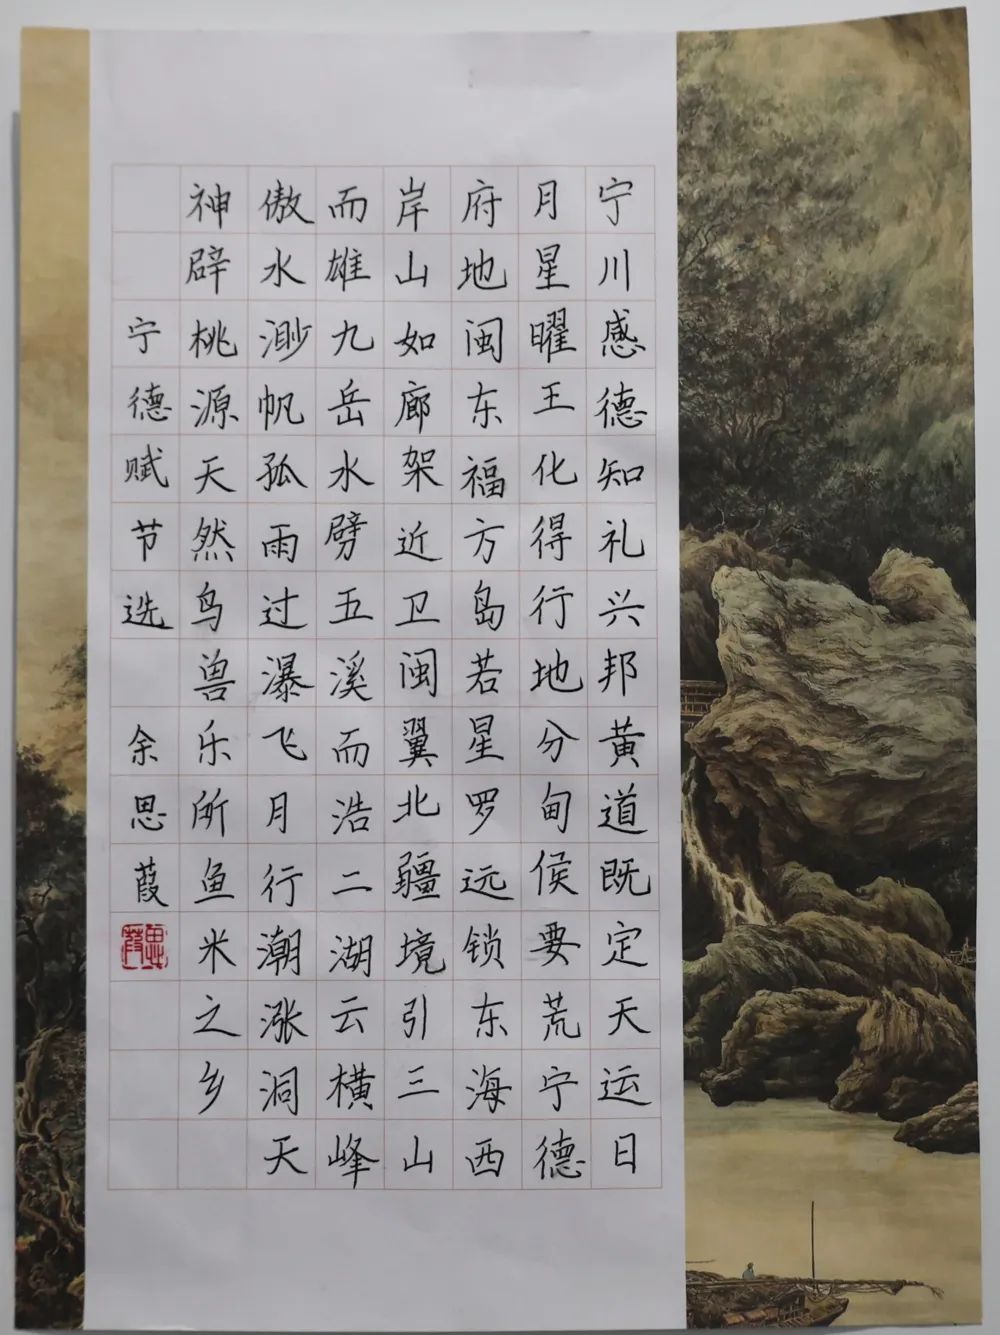 宁川感德知礼兴邦黄道既定天运日
月星曜王化得行地分甸侯要荒宁德
府地闽东福方岛若星罗远锁东海西
岸山如廊架近卫闽翼北疆境引三山
而雄九岳水劈五溪而浩二湖云横峰
傲水渺帆孤雨过瀑飞月行潮涨洞天
神辟桃源天然鸟兽乐所鱼米之乡
宁德赋节选 余思葭
思葭